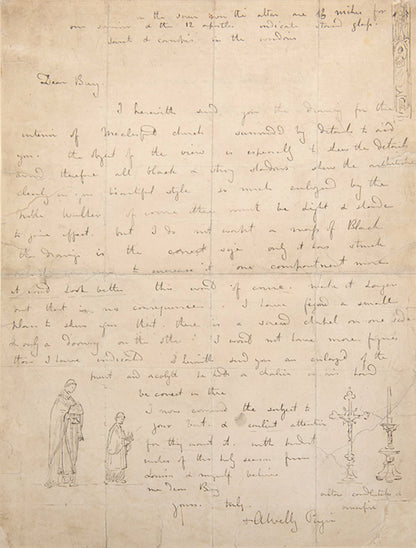 in the space over the altar are 13 niches for
our saviour & the 12 apostles indicate stained glass.
saint & canopies in the windows
Dear Bury
I herewith send you the drawing for the
interior of Macclesfield church surrounded by details to aid
you. the object of the view is especially to shew the details
avoid therefore all black & strong shadows shew the architecture
clearly in your beautiful style so much enlarged by the
noble Walker of course there must be light & shadow
to give effect. but I do not want a mass of Black
the drawing is the correct size only it has struck
me to increase it one compartment more
it would look better this would of course make it larger
but that is no consequence. I have figured a small
plan to shew you that there is a screened chapel on one side
& only a doorway on the other I would not have more figures
than I have indicated I herewith send you an enlarged of the
priest and acolyte he holds a chalice in his hand
be correct in this
I now commend the subject to
your best & earliest attention
for they want it. with kindest
wishes of this holy season from
Louisa & myself believe
me dear Bury
yours truly.
+AWelby Pugin
altar candlesticks &
crucifix